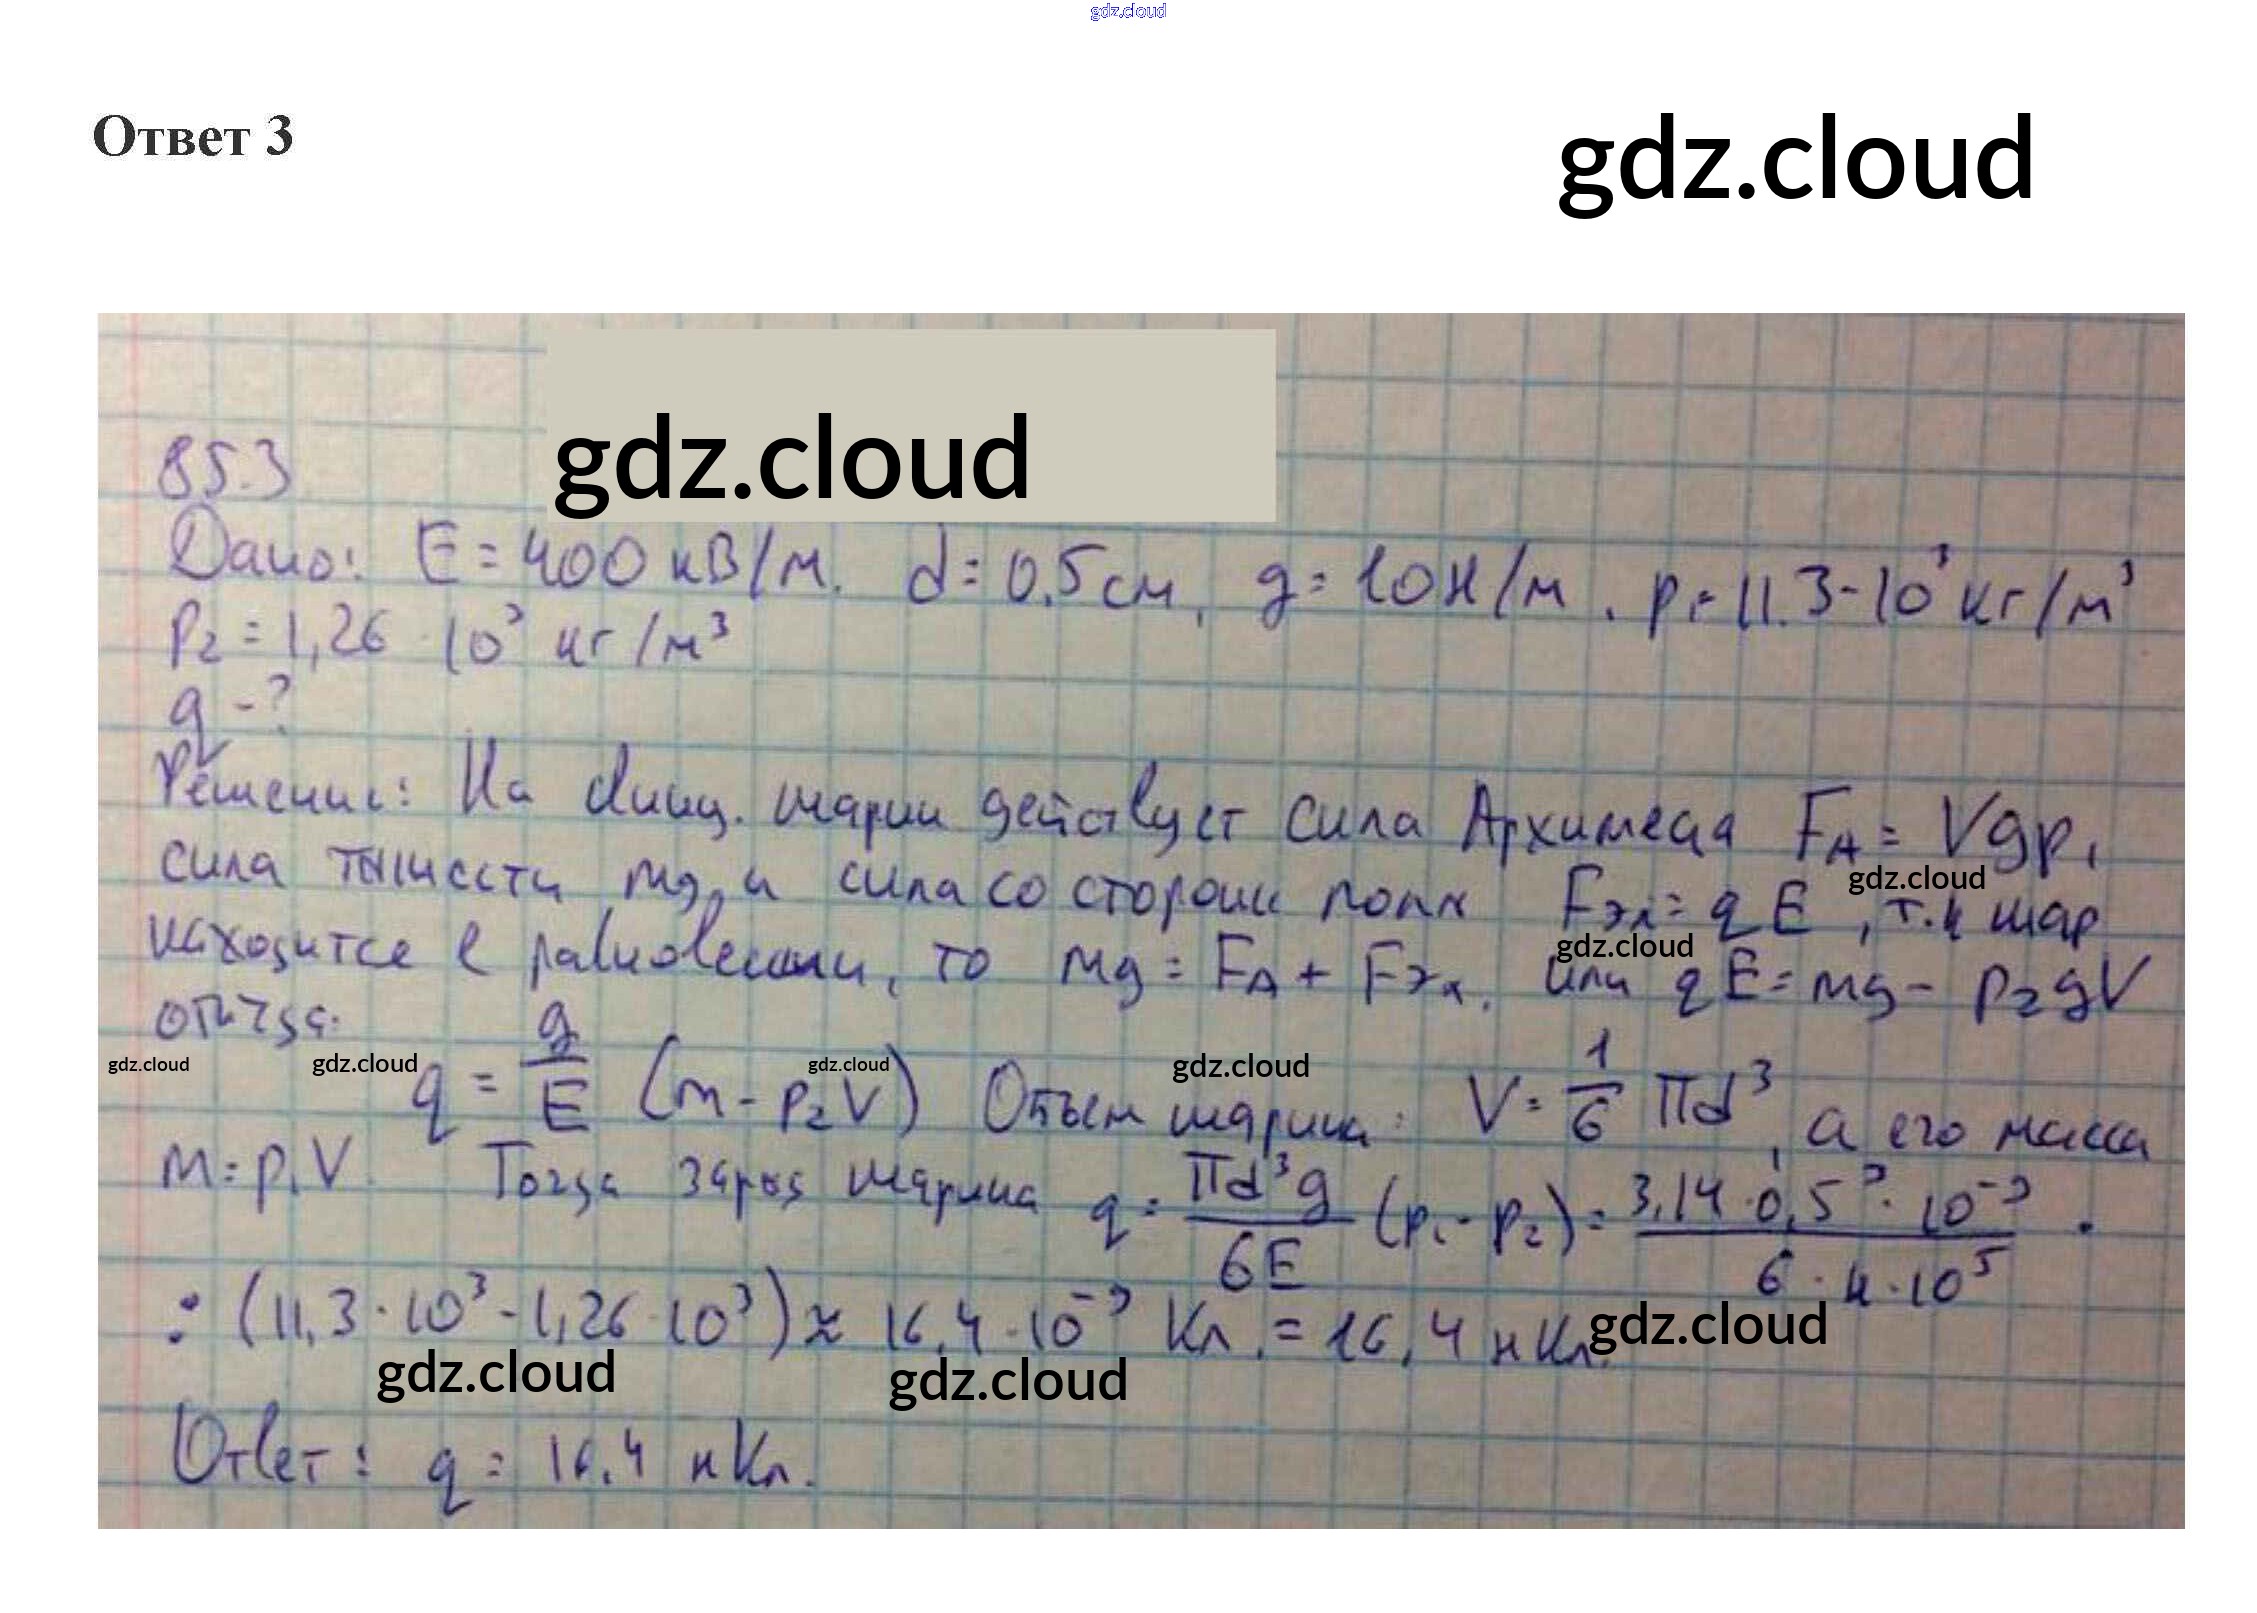 gdz.cloud
Ответ 3
gdz.cloud
gdz.cloud
85.3
Дано: E = 400 кВ/м. d = 0.5 см, g = 10 Н/м. p₁ = 11.3 · 10³ кг/м³
p₂ = 1,26 · 10³ кг/м³
q - ?
Решение: На свинц. шарик действует сила Архимеда Fₐ = Vgp,
gdz.cloud
сила тяжести mg, и сила со стороны поля Fэл = qE, т.к шар
gdz.cloud
находится в равновесии, то mg = Fₐ + Fэл. или qE = mg - p₂gV
отсюда:
gdz.cloud gdz.cloud gdz.cloud gdz.cloud
q = g/E (m - p₂V) Объем шарика: V = 1/6 πd³, а его масса
m = p₁V. Тогда заряд шарика q = πd³g/6E (p₁ - p₂) = 3,14 · 0,5³ · 10⁻⁹/6 · 4 · 10⁵ ·
· (11,3 · 10³ - 1,26 · 10³) ≈ 16,4 · 10⁻⁹ Кл. = 16,4 нКл.
gdz.cloud
gdz.cloud gdz.cloud
Ответ: q = 16,4 нКл.